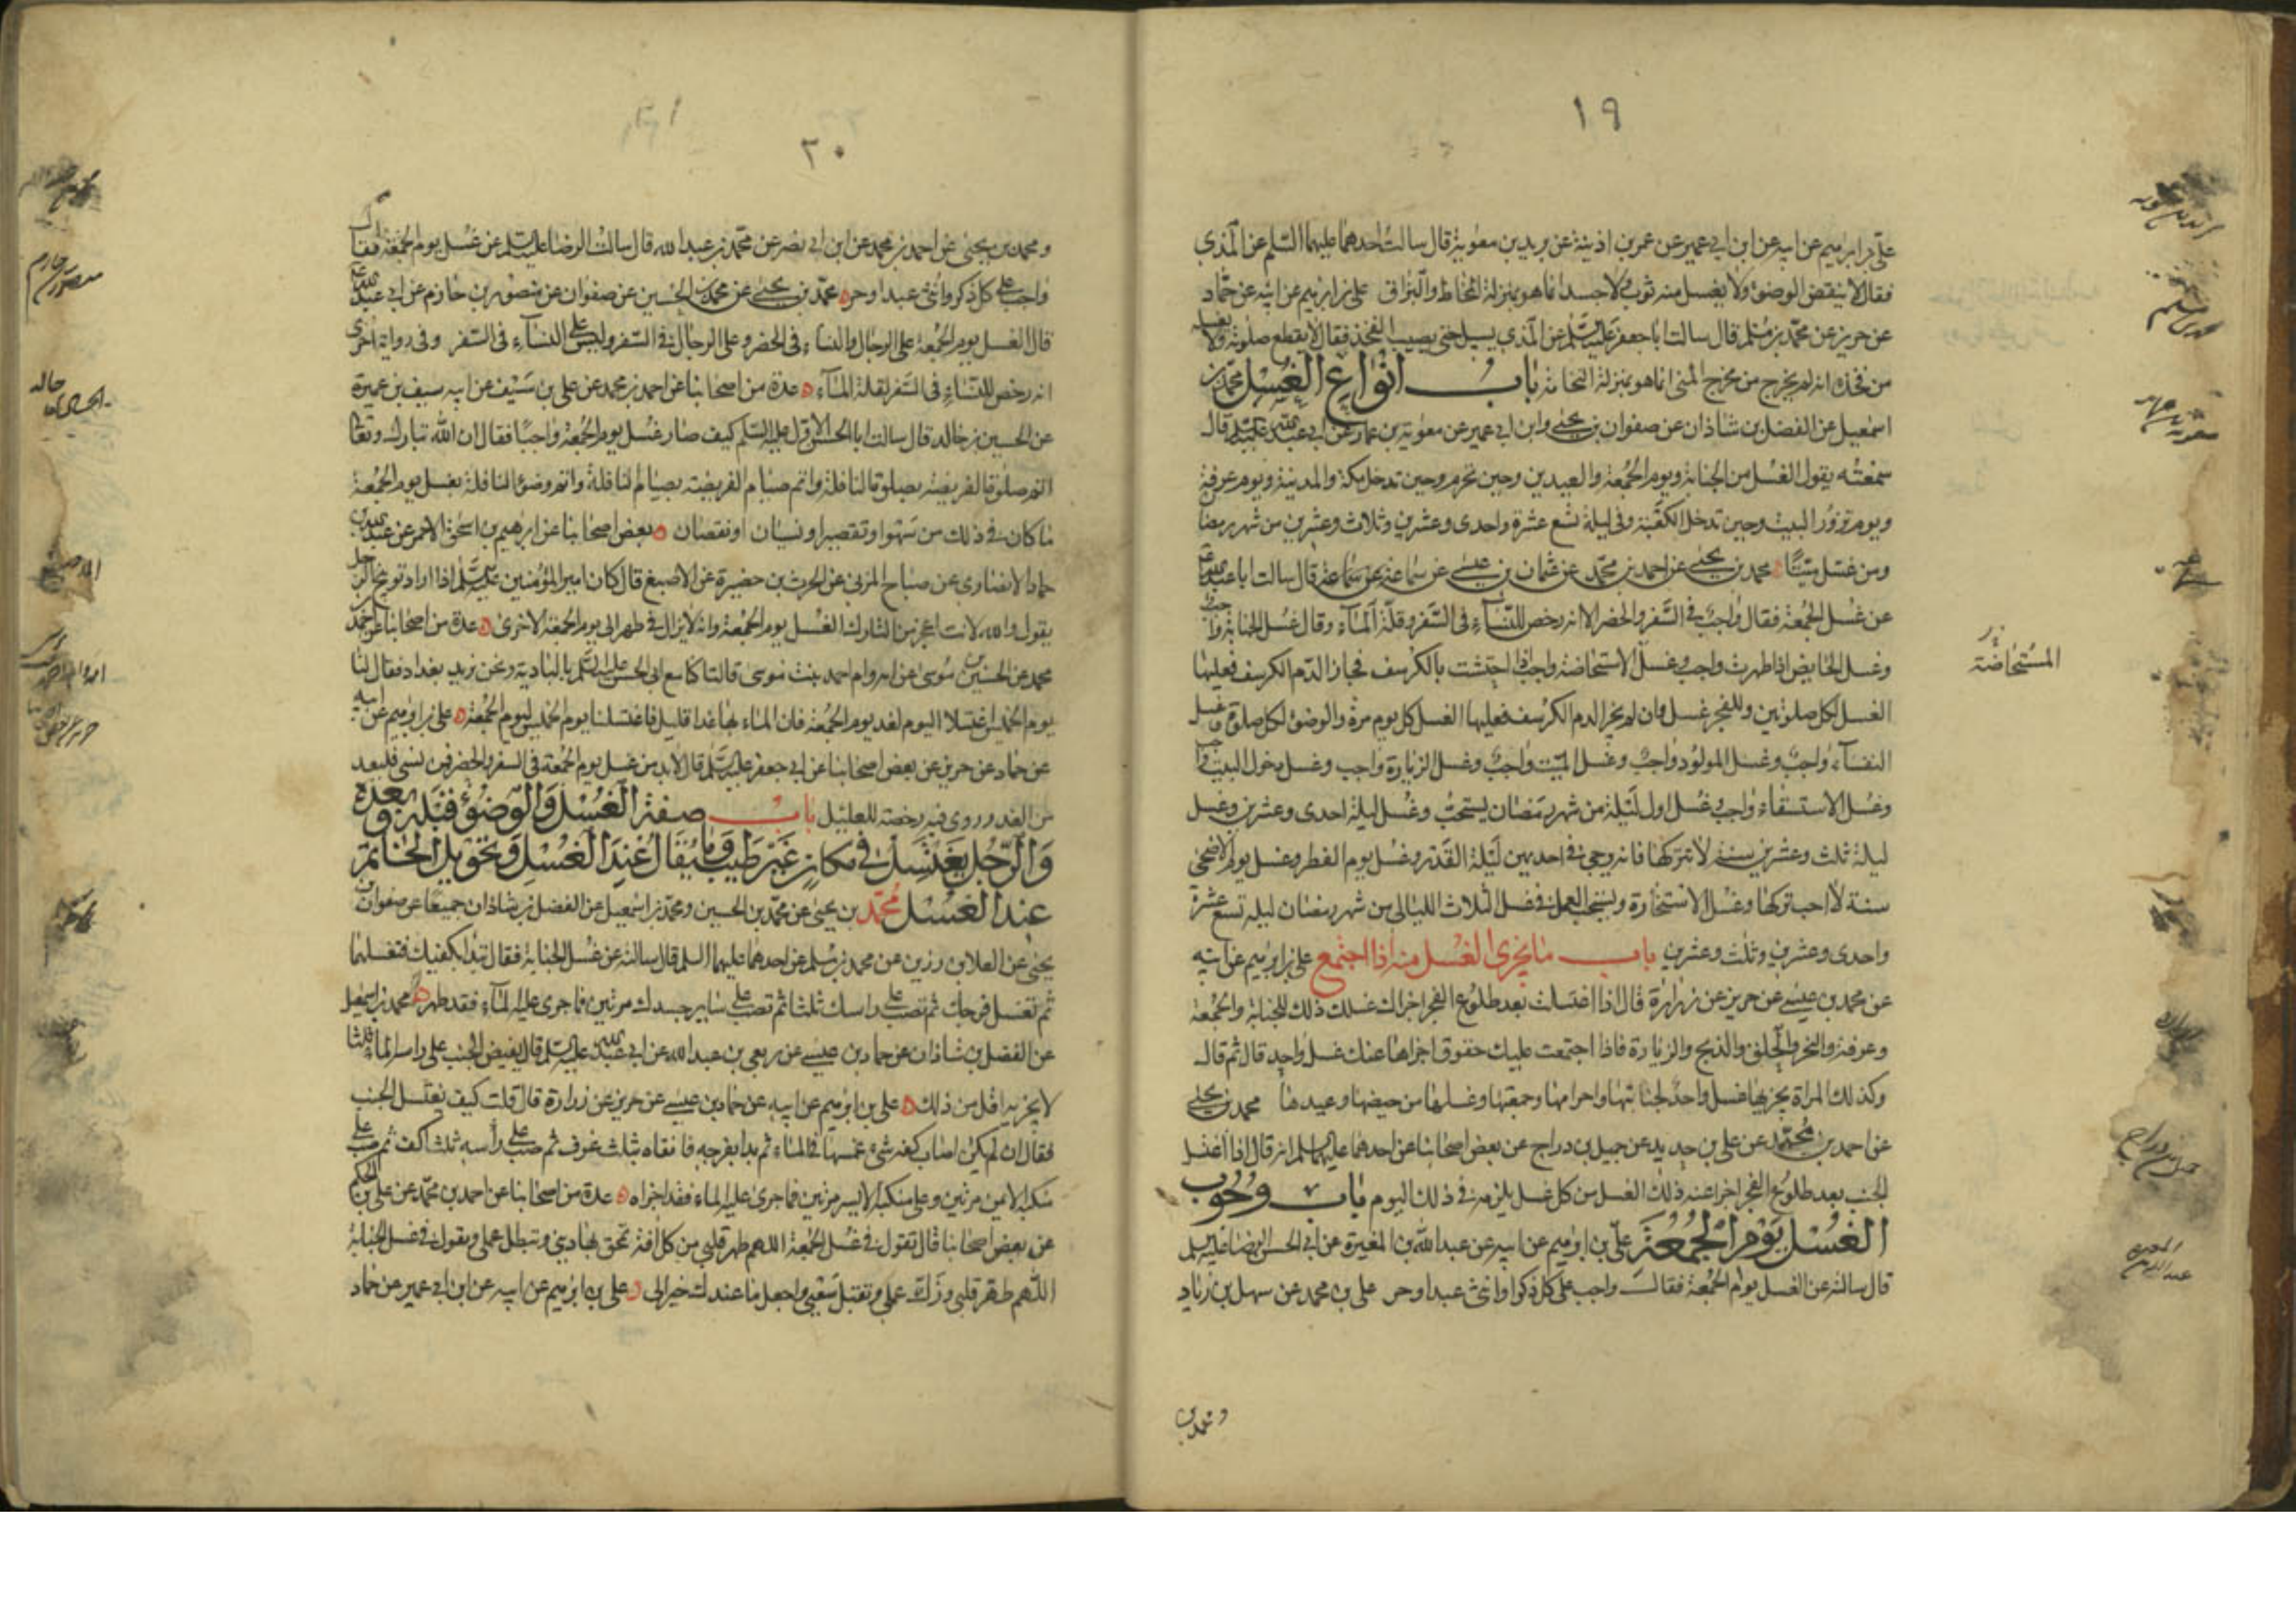 ١٩
علي بن ابراهيم عن ابيه عن ابن ابي عمير عن عمر بن اذينة عن بريد بن معوية قال سالت احدهما عليهما السلم عن المذي
فقال لا ينقض الوضوء ولا يغسل منه ثوب ولا جسد انما هو بمنزلة المخاط والبزاق علي بن ابراهيم عن ابيه عن حماد
عن حريز عن محمد بن مسلم قال سالت ابا جعفر عليه السلم عن المذي يسيل حتى يصيب الفخذ فقال لا يقطع صلوته ولا يغسله
من فخذه انه لم يخرج من مخرج المني انما هو بمنزلة النخامة باب انواع الغسل محمد بن
اسمعيل عن الفضل بن شاذان عن صفوان بن يحيى وابن ابي عمير عن معوية بن عمار عن ابي عبد الله عليه السلم قال
سمعته يقول الغسل من الجنابة ويوم الجمعة والعيدين وحين تحرم وحين تدخل مكة والمدينة ويوم عرفة
ويوم تزور البيت وحين تدخل الكعبة وفي ليلة تسع عشرة واحدى وعشرين وثلاث وعشرين من شهر رمضان
ومن غسل ميتا محمد بن يحيى عن احمد بن محمد عن عثمان بن عيسى عن سماعة قال سالت ابا عبد الله
عن غسل الجمعة فقال واجب في السفر والحضر الا انه رخص للنساء في السفر وقلة الماء وقال غسل الجنابة واجب
وغسل الحايض اذا طهرت واجب وغسل الاستحاضة واجب اذا احتشت بالكرسف فجاز الدم الكرسف فعليها
المستحاضة
الغسل لكل صلوتين وللفجر غسل وان لم يجز الدم الكرسف فعليها الغسل كل يوم مرة والوضوء لكل صلوة وغسل
النفساء واجب وغسل المولود واجب وغسل الميت واجب وغسل الزيارة واجب وغسل دخول البيت واجب
وغسل الاستسقاء واجب وغسل اول ليلة من شهر رمضان يستحب وغسل ليلة احدى وعشرين وغسل
ليلة ثلث وعشرين سنة لا تتركها فانه يرجى في احديهن ليلة القدر وغسل يوم الفطر وغسل يوم الاضحى
سنة لا احب تركها وغسل الاستخارة ويستحب العمل في غسل الثلاث الليالي من شهر رمضان ليلة تسع عشرة
واحدى وعشرين وثلث وعشرين باب ما يجزى الغسل منه اذا اجتمع علي بن ابراهيم عن ابيه
عن محمد بن عيسى عن حريز عن زرارة قال اذا اغتسلت بعد طلوع الفجر اجزاك غسلك ذلك للجنابة والجمعة
وعرفة والنحر والحلق والذبح والزيارة فاذا اجتمعت عليك حقوق اجزاها عنك غسل واحد قال ثم قال
وكذلك المراة يجزيها غسل واحد لجنابتها واحرامها وجمعتها وغسلها من حيضها وعيدها محمد بن يحيى
عن احمد بن محمد عن علي بن حديد عن جميل بن دراج عن بعض اصحابنا عن احدهما عليهما السلم انه قال اذا اغتسل
الجنب بعد طلوع الفجر اجزا عنه ذلك الغسل من كل غسل يلزمه في ذلك اليوم باب وجوب
الغسل يوم الجمعة علي بن ابراهيم عن ابيه عن عبد الله بن المغيرة عن ابي الحسن الرضا عليه السلم
قال سالته عن الغسل يوم الجمعة فقال واجب على كل ذكر او انثى عبد او حر علي بن محمد عن سهل بن زياد
ومحمد بن
٢٠
ومحمد بن يحيى عن احمد بن محمد عن ابن ابي نصر عن محمد بن عبد الله قال سالت الرضا عليه السلم عن غسل يوم الجمعة فقال
واجب على كل ذكر وانثى عبد او حر محمد بن يحيى عن محمد بن الحسين عن صفوان عن منصور بن حازم عن ابي عبد الله
قال الغسل يوم الجمعة على الرجال والنساء في الحضر وعلى الرجال في السفر وليس على النساء في السفر وفي رواية اخرى
انه رخص للنساء في السفر لقلة الماء عدة من اصحابنا عن احمد بن محمد عن علي بن سيف عن ابيه سيف بن عميرة
عن الحسين بن خالد قال سالت ابا الحسن الاول عليه السلم كيف صار غسل يوم الجمعة واجبا فقال ان الله تبارك وتعالى
اتم صلوة الفريضة بصلوة النافلة واتم صيام الفريضة بصيام النافلة واتم وضوء النافلة بغسل يوم الجمعة
ما كان في ذلك من سهو او تقصير او نسيان او نقصان بعض اصحابنا عن ابرهيم بن اسحق الاحمر عن عبد الله بن
حماد الانصاري عن صباح المزني عن الحرث بن حضيرة عن الاصبغ قال كان امير المؤمنين عليه السلم اذا اراد توبيخ الرجل
يقول والله لانت اعجز من التارك الغسل يوم الجمعة وانه لا يزال في طهر الى يوم الجمعة الاخرى عدة من اصحابنا عن احمد بن
محمد عن الحسين بن موسى عن امه وام احمد بنت موسى قالتا كنا مع ابي الحسن عليه السلم بالبادية ونحن نريد بغداد فقال لنا
يوم الخميس اغتسلا اليوم لغد يوم الجمعة فان الماء بها غدا قليل فاغتسلنا يوم الخميس ليوم الجمعة علي بن ابراهيم عن ابيه
عن حماد عن حريز عن بعض اصحابنا عن ابي جعفر عليه السلم قال لا بد من غسل يوم الجمعة في السفر والحضر فمن نسي فليعد
من الغد وروى فيه رخصة للعليل باب صفة الغسل والوضوء قبله وبعده
والرجل يغتسل في مكان غير طيب وما يقال عند الغسل وتحويل الخاتم
عند الغسل محمد بن يحيى عن محمد بن الحسين ومحمد بن اسمعيل عن الفضل بن شاذان جميعا عن صفوان بن
يحيى عن العلا بن رزين عن محمد بن مسلم عن احدهما عليهما السلم قال سالته عن غسل الجنابة فقال تبدا بكفيك فتغسلهما
ثم تغسل فرجك ثم تصب على راسك ثلثا ثم تصب على ساير جسدك مرتين فما جرى عليه الماء فقد طهر محمد بن اسمعيل
عن الفضل بن شاذان عن حماد بن عيسى عن ربعي بن عبد الله عن ابي عبد الله عليه السلم قال يفيض الجنب على راسه الماء ثلثا
لا يجزيه اقل من ذلك علي بن ابراهيم عن ابيه عن حماد بن عيسى عن حريز عن زرارة قال قلت كيف يغتسل الجنب
فقال ان لم يكن اصاب كفه شيء غمسها في الماء ثم بدا بفرجه فانقاه بثلث غرف ثم صب على رأسه ثلث اكف ثم صب على
منكبه الايمن مرتين وعلى منكبه الايسر مرتين فما جرى عليه الماء فقد اجزاه عدة من اصحابنا عن احمد بن محمد عن علي بن الحكم
عن بعض اصحابنا قال تقول في غسل الجمعة اللهم طهر قلبي من كل افة تمحق بها ديني وتبطل عملي وتقول في غسل الجنابة
اللهم طهر قلبي وزك عملي وتقبل سعيي واجعل ما عندك خيرا لي علي بن ابراهيم عن ابيه عن ابن ابي عمير عن حماد